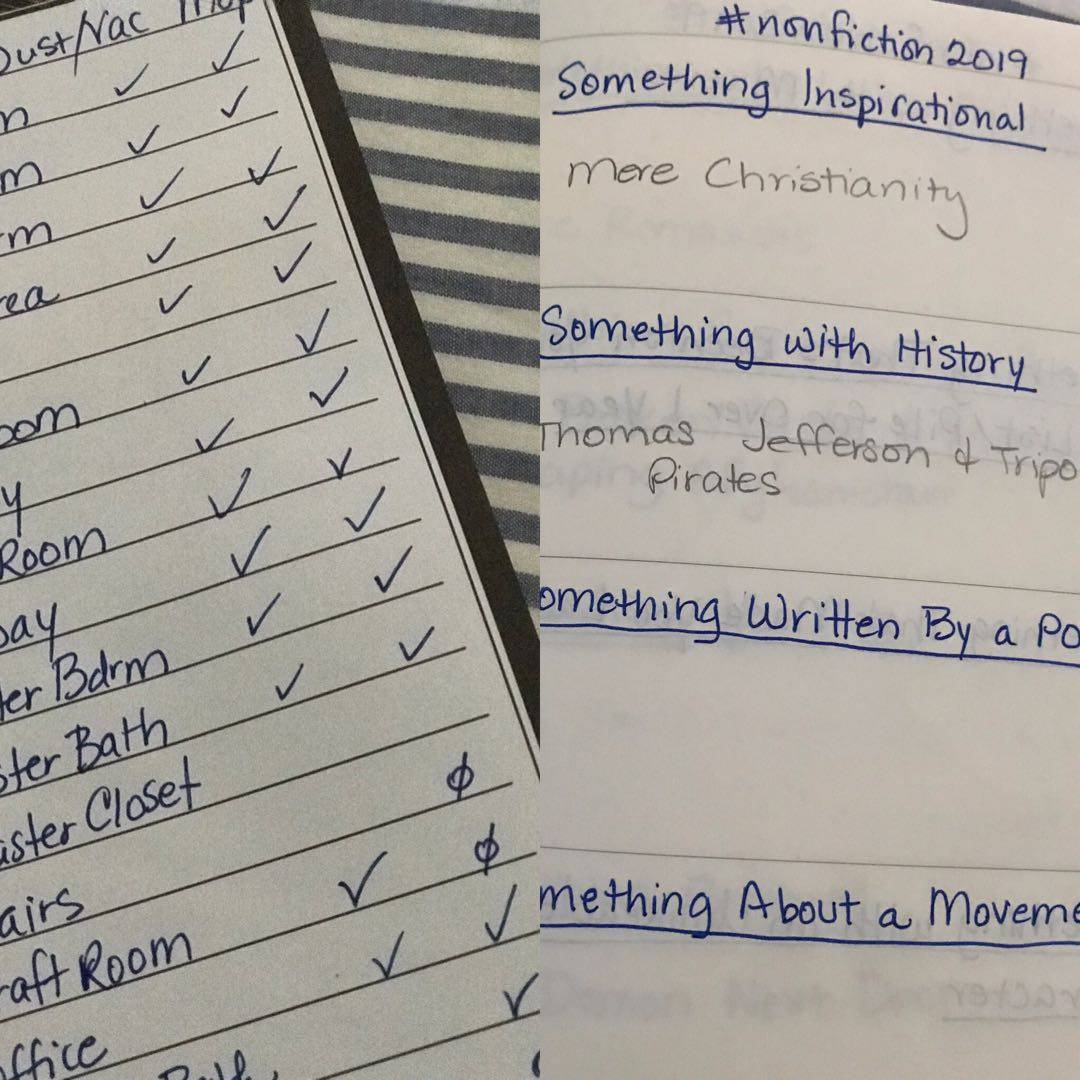 Dust/Vac Mop
✓ ✓
✓ ✓
✓ ✓
✓ ✓
rea ✓ ✓
✓
oom ✓ ✓
✓
Room ✓ ✓
✓ ✓
ter Bdrm ✓ ✓
ster Bath ✓ ✓
aster Closet
airs ϕ
raft Room ✓ ϕ
ffice ✓ ✓
✓
#nonfiction 2019
Something Inspirational
mere Christianity
Something with History
Thomas Jefferson & Tripo
Pirates
omething Written By a Po
mething About a Moveme